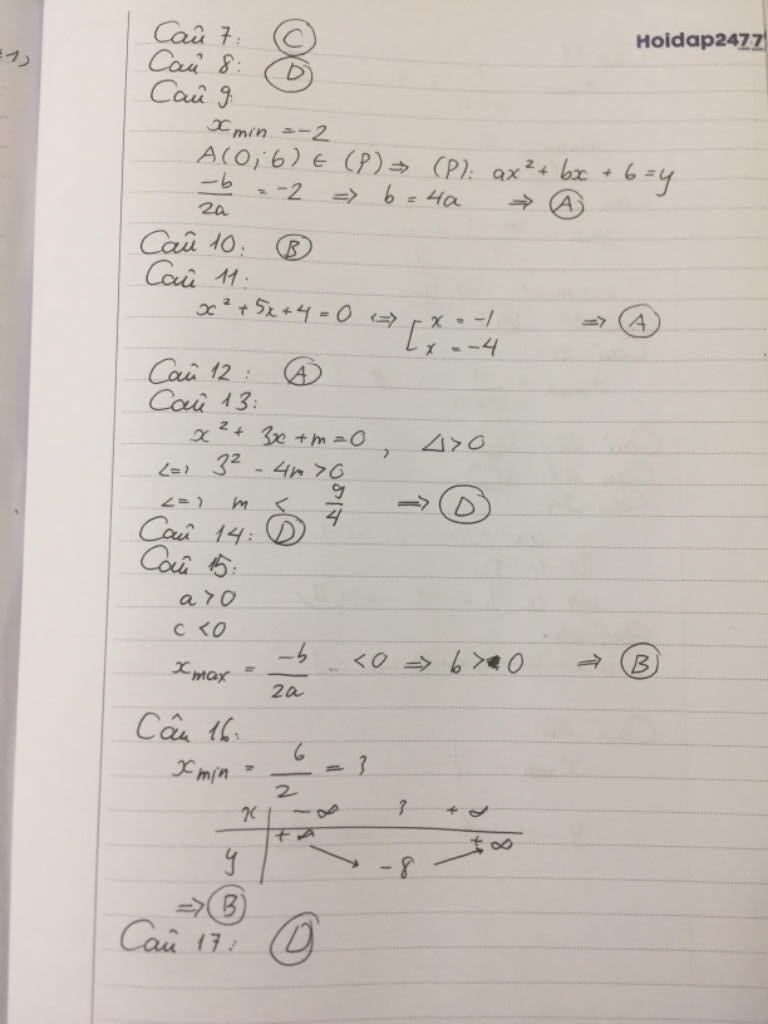 Hoidap247
Câu 7: C
Câu 8: D
Câu 9:
x min = -2
A(0; 6) ∈ (P) ⇒ (P): ax² + bx + 6 = y
-b/2a = -2 ⇒ b = 4a ⇒ A
Câu 10: B
Câu 11:
x² + 5x + 4 = 0 ⇔ [ x = -1 ⇒ A
x = -4
Câu 12: A
Câu 13:
x² + 3x + m = 0, Δ > 0
<=> 3² - 4m > 0
<=> m < 9/4 ⇒ D
Câu 14: D
Câu 15:
a > 0
c < 0
x max = -b/2a < 0 ⇒ b > 0 ⇒ B
Câu 16:
x min = 6/2 = 3
x | -∞ 3 +∞
y | +∞ ↘ -8 ↗ +∞
⇒ B
Câu 17: D